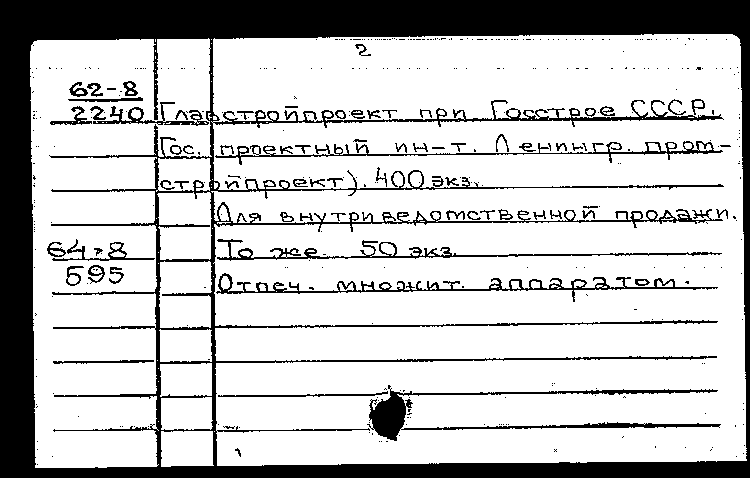 2
62-8
2240 Главстройпроект при Госстрое СССР.
Гос. проектный ин-т. Ленингр. пром-
стройпроект). 400 экз.
Для внутриведомственной продажи.
64-8 То же 50 экз.
595 Отпеч. множит. аппаратом.